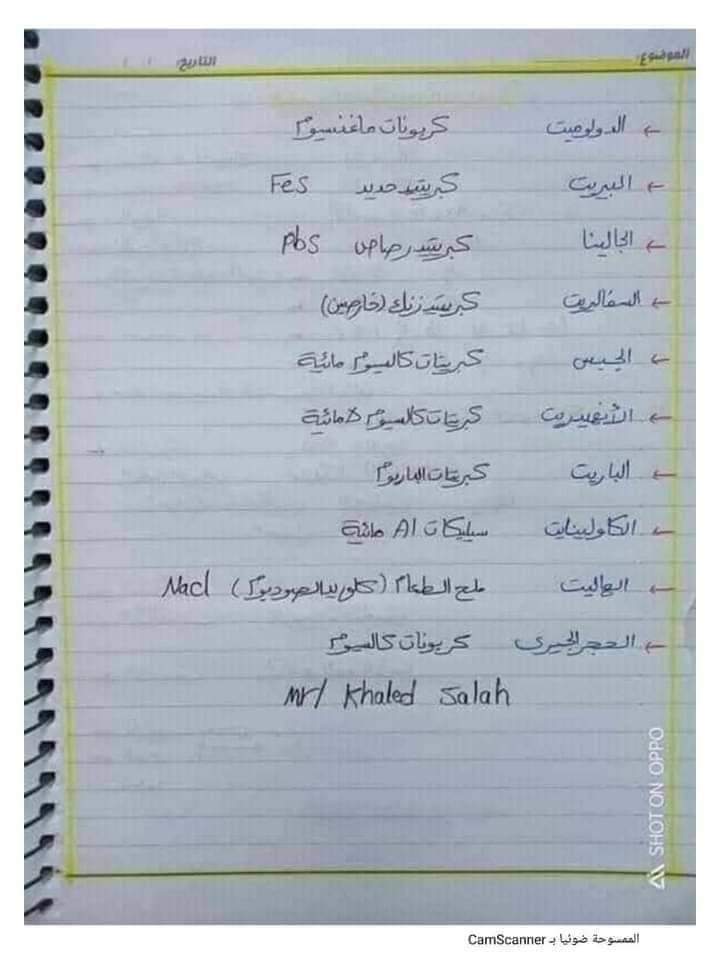 الموضوع: التاريخ: / /
← الدولوميت كربونات ماغنسيوم
← البيريت كبريتيد حديد FeS
← الجالينا كبريتيد رصاص PbS
← السفاليريت كبريتيد زنك (خارصين)
← الجبس كبريتات كالسيوم مائية
← الأنهيدريت كبريتات كالسيوم لامائية
← الباريت كبريتات الباريوم
← الكاولينايت سيليكات Al مائية
← الهاليت ملح الطعام (كلوريد الصوديوم) Nacl
← الحجر الجيرى كربونات كالسيوم
mr/ Khaled Salah
SHOT ON OPPO
الممسوحة ضوئيا بـ CamScanner